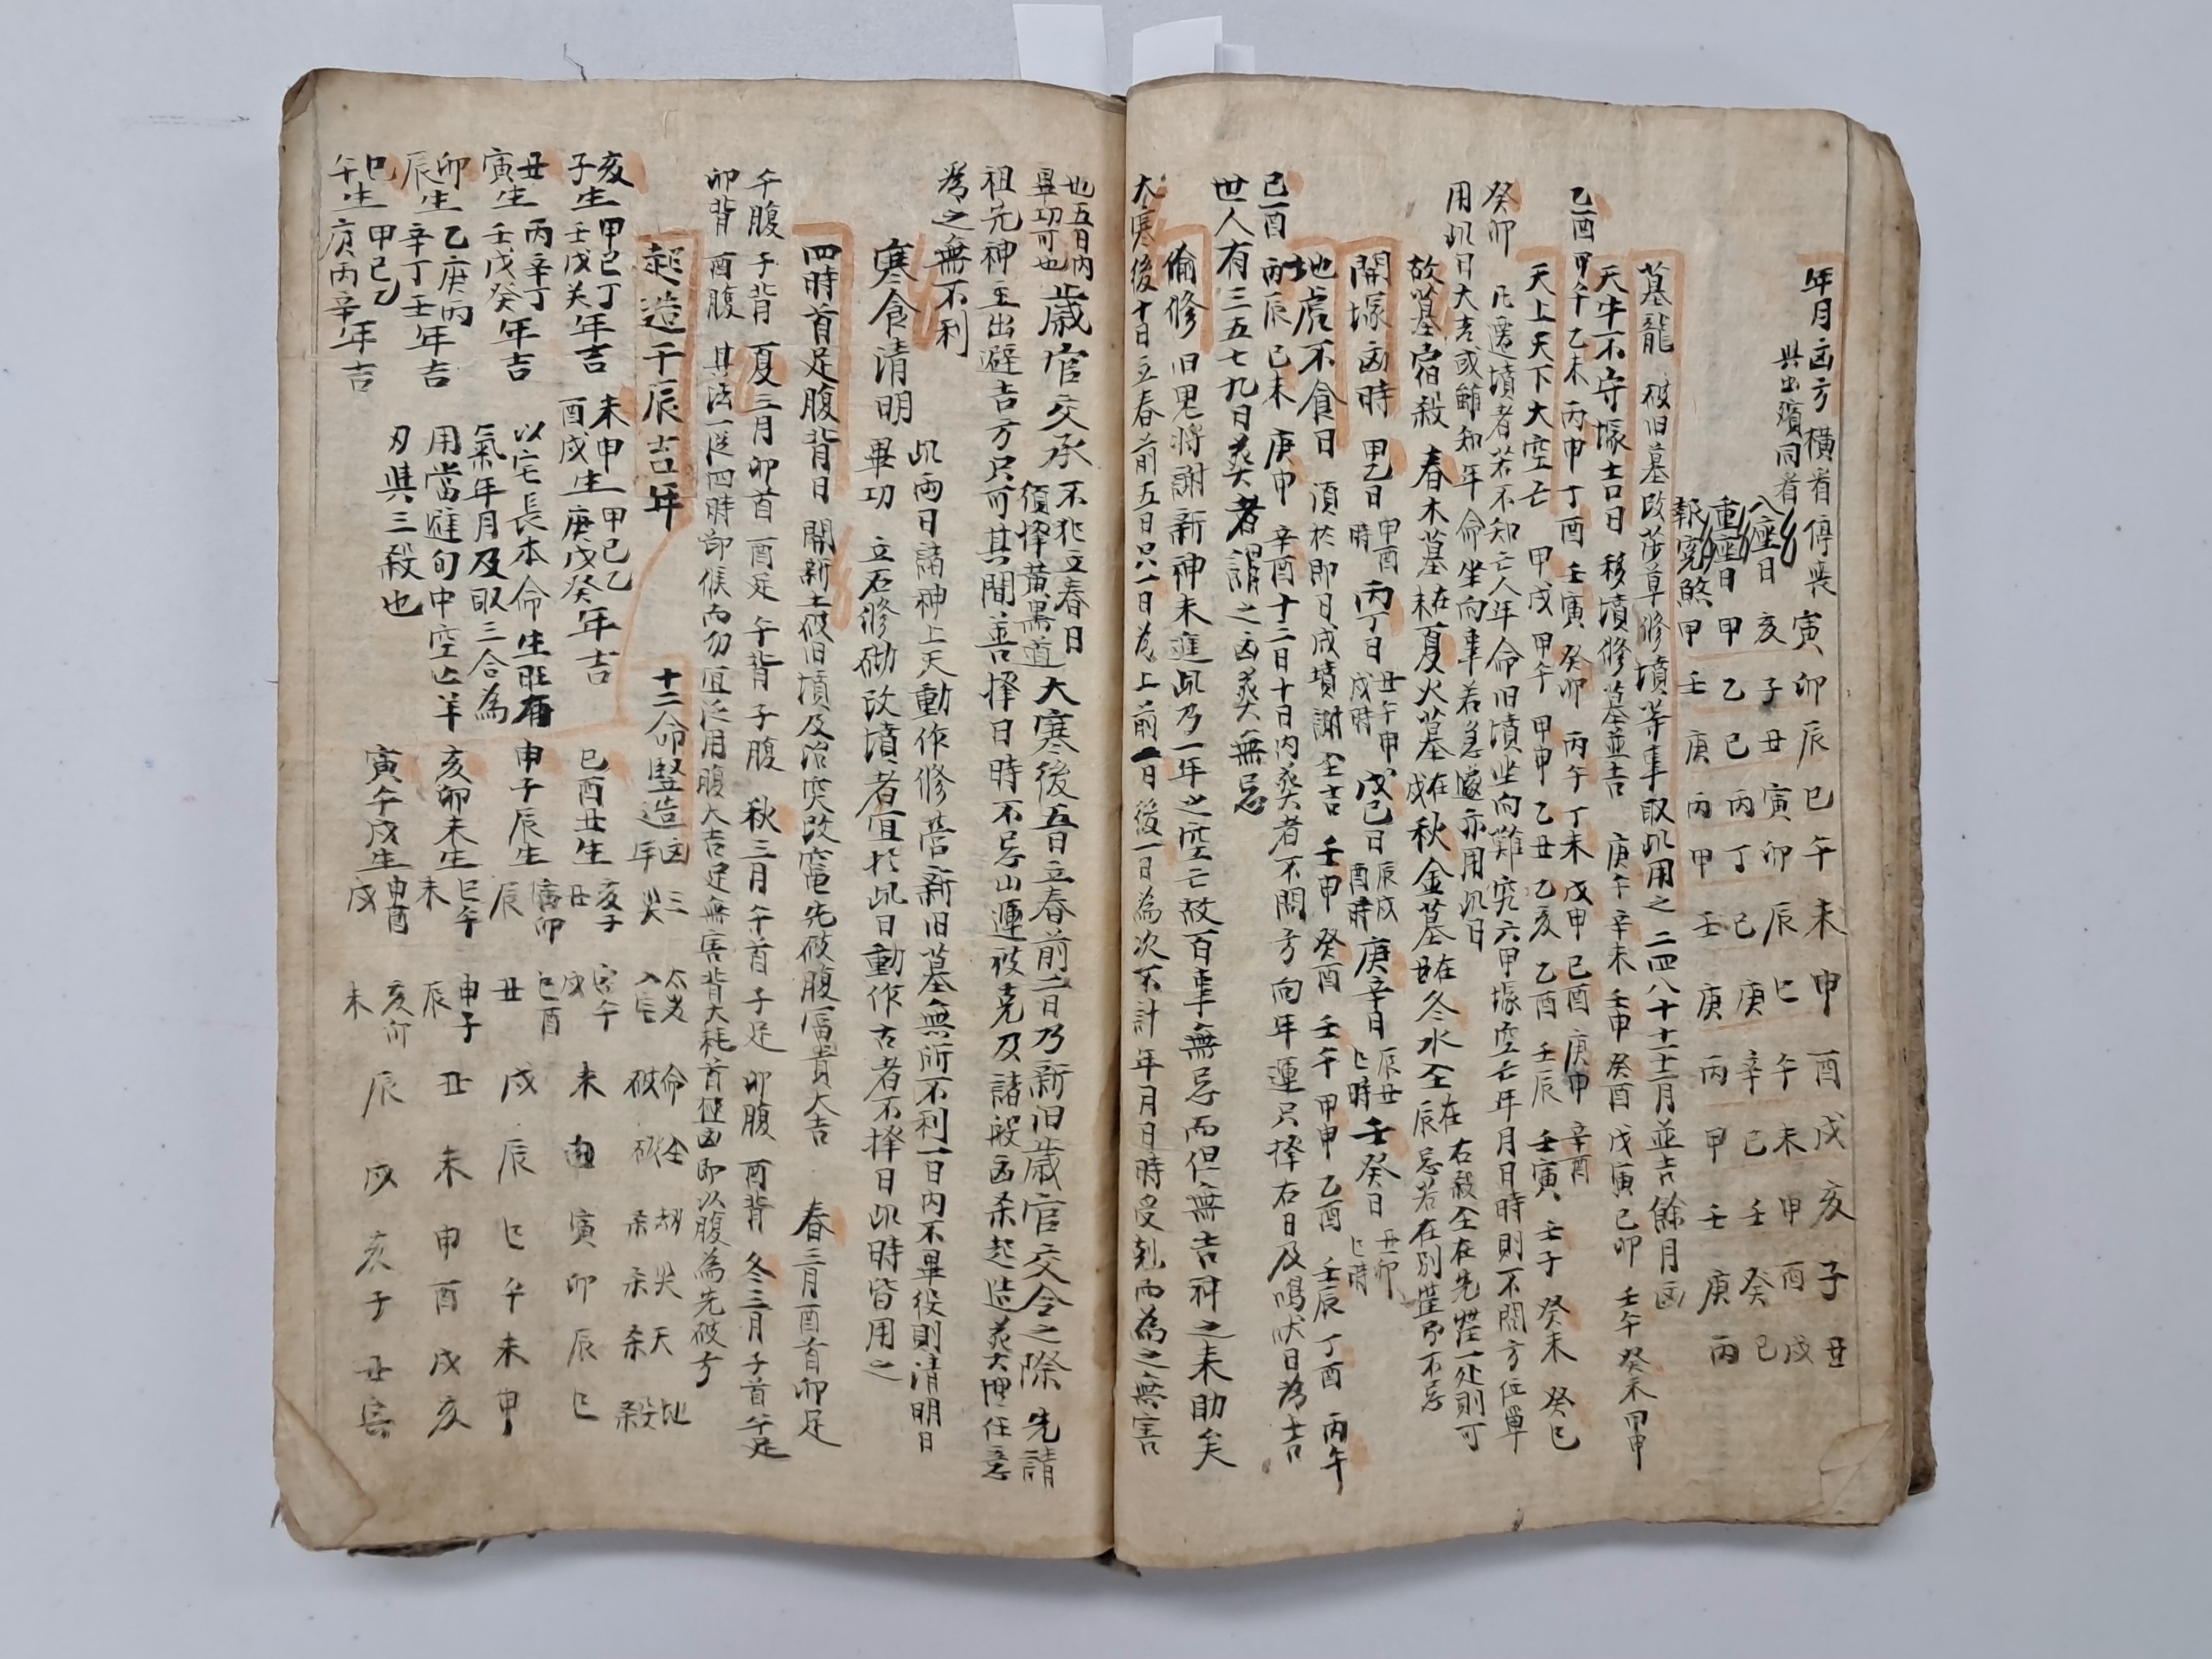 年月凶方橫看停喪 寅卯辰巳午未申酉戌亥子丑
與出殯同看
八座日 亥子丑寅卯辰巳午未申酉戌
重座日 甲乙巳丙丁巳庚辛巳壬癸巳
報寃煞 甲壬庚丙甲壬庚丙甲壬庚丙
墓龍 破旧墓改莎草修墳等事取此用之 二四八十十一十二月並吉餘月凶
天牛不守塚吉日 移墳修墓並吉 庚午辛未壬申癸酉戊寅己卯 壬午癸未甲申
乙酉甲午乙未丙申丁酉壬寅癸卯丙午丁未戊申己酉庚申辛酉
天上天下大空亡 甲戌甲午甲申乙丑乙亥乙酉壬辰壬寅壬子癸未癸巳
癸卯 凡遷墳者若不知亡人年命旧墳坐向難究六甲塚空亡年月日時則不問方位單
用此日大吉或雖知年命坐向事若急遽亦用此日
故墓宿殺 春木墓在未夏火墓在戌秋金墓在丑冬水土在辰 右殺全在先塋一处則可忌若在別塋即不忌
開塚凶時 甲乙日申酉時 丙丁日丑午申戌時 戊己日辰戌酉時 庚辛日辰丑巳時 壬癸日丑卯巳時
地虎不食日 須於即日成墳謝全吉 壬申癸酉壬午甲申乙酉壬辰丁酉丙午
己酉丙辰己未庚申辛酉十二日十日内葬者不問方向年運只擇右日及鳴吠日為吉
世人有三五七九日葬者謂之凶葬無忌
偷修 旧鬼將謝新神未進此乃一年之空亡故百事無忌而但無吉神之来助矣
大寒後十日立春前五日只一日為上前一日後一日為次不計年月日時受剋而為之無害
也五日内畢功可也 歲官交承 不犯立春日須擇黃黑道 大寒後五日立春前二日乃新旧歲官交令之際 先請
祖先神主出避吉方只可其間善擇日時不忌山運被克及諸般凶杀起造葬埋任意
為之無不利
寒食清明 此兩日諸神上天動作修营新旧墓無所不利一日内不畢役則清明日
畢功 立石修砌改墳者宜於此日動作古者不擇日此時皆用之
四時首足腹背日 開新土破旧墳及治突改竈先破腹富貴大吉 春三月酉首卯足
午腹子背 夏三月卯首酉足午背子腹 秋三月午首子足卯腹酉背 冬三月子首午足
卯背酉腹 其法一從四時節候而勿宜泛用腹大吉足無害背大耗首極凶即以腹為先破方
起造干辰吉年
亥子生甲己丁壬戊癸年吉
丑寅生丙辛丁壬戊癸年吉
卯辰生乙庚丙辛丁壬年吉
巳午生甲己乙庚丙辛年吉
未申酉戌生甲己乙庚戊癸年吉
以宅長本命生旺有
氣年月及取三合為
用當避旬中空亡羊
刃與三殺也
十二命竪造凶年 三災 太歲入宮 命破 全破 刼杀 災杀 天杀 地殺
巳酉丑生 亥子丑 寅午戌 未 寅卯辰巳
申子辰生 寅卯辰 巳酉丑 戌辰巳午未申
亥卯未生 巳午未 申子辰 丑未申酉戌亥
寅午戌生 申酉戌 亥卯未 辰戌亥子丑寅